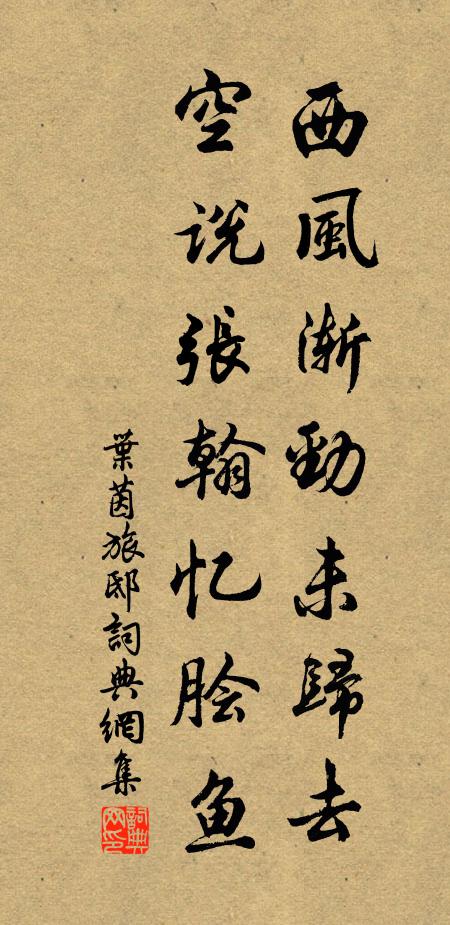 西風漸勁未歸去
空説張翰忆脍鱼
葉茵旅邸詞典網集
詞典网印